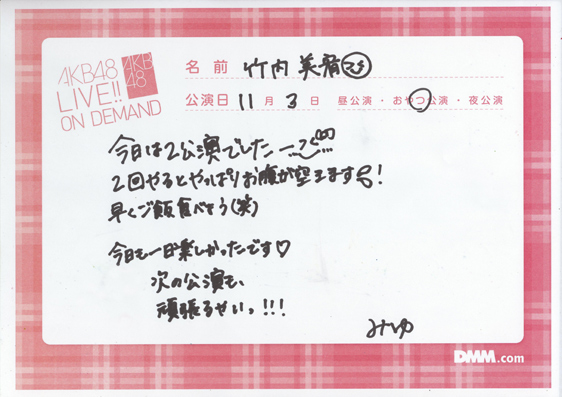 AKB48
LIVE!!
ON DEMAND
AKB
48
名前 竹内美宥
公演日 11月3日 昼公演・おやつ公演・夜公演
今日は2公演でしたー
2回やるとやっぱりお腹が空きます!
早くご飯食べよう(笑)
今日も一日楽しかったです♡
次の公演も、
頑張るぜいっ!!!
みゆ
DMM.com